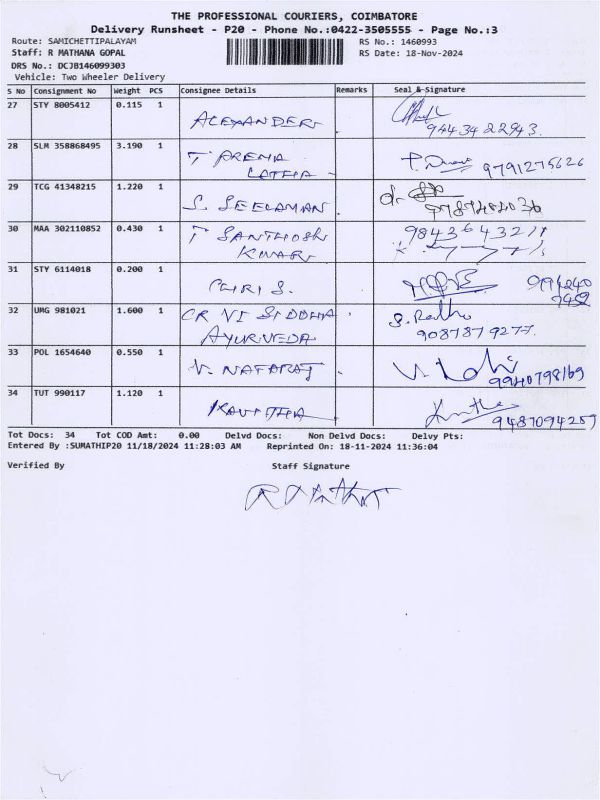 THE PROFESSIONAL COURIERS, COIMBATORE
Delivery Runsheet - P20 - Phone No.:0422-3505555 - Page No.:3
Route: SAMICHETTIPALAYAM RS No.: 1460993
Staff: R MATHANA GOPAL RS Date: 18-Nov-2024
DRS No.: DCJB146099303
Vehicle: Two Wheeler Delivery
S No Consignment No Weight PCS Consignee Details Remarks Seal & Signature
27 STY 8005412 0.115 1
ALEXANDER 9443422943
28 SLM 358868495 3.190 1
T 9791275626
LATHA
29 TCG 41348215 1.220 1
S. SEELAMAN
30 MAA 302110852 0.430 1 9843643211
T SANTHOSH
KUMAR
31 STY 6114018 0.200 1
32 UMG 981021 1.600 1 SIDDHA S. Radha
AYURVEDA 9087879277.
33 POL 1654640 0.550 1
V. NATARAJ 9940798169
34 TUT 990117 1.120 1
KAVITHA 9487094259
Tot Docs: 34 Tot COD Amt: 0.00 Delvd Docs: Non Delvd Docs: Delvy Pts:
Entered By :SUMATHIP20 11/18/2024 11:28:03 AM Reprinted On: 18-11-2024 11:36:04
Verified By Staff Signature